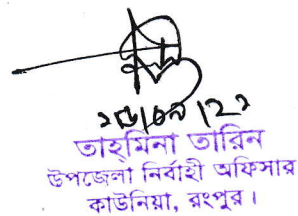 তাহ্‌মিনা তারিন
উপজেলা নির্বাহী অফিসার
কাউনিয়া, রংপুর।